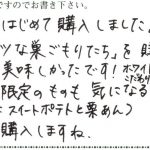 ですのでお書き下さい。
はじめて購入しました。
ツな巣ごもりたち」を
美味しかったです！ ホワイト
限定のものも 気になる
：スイートポテトと栗あん）
購入しますね．